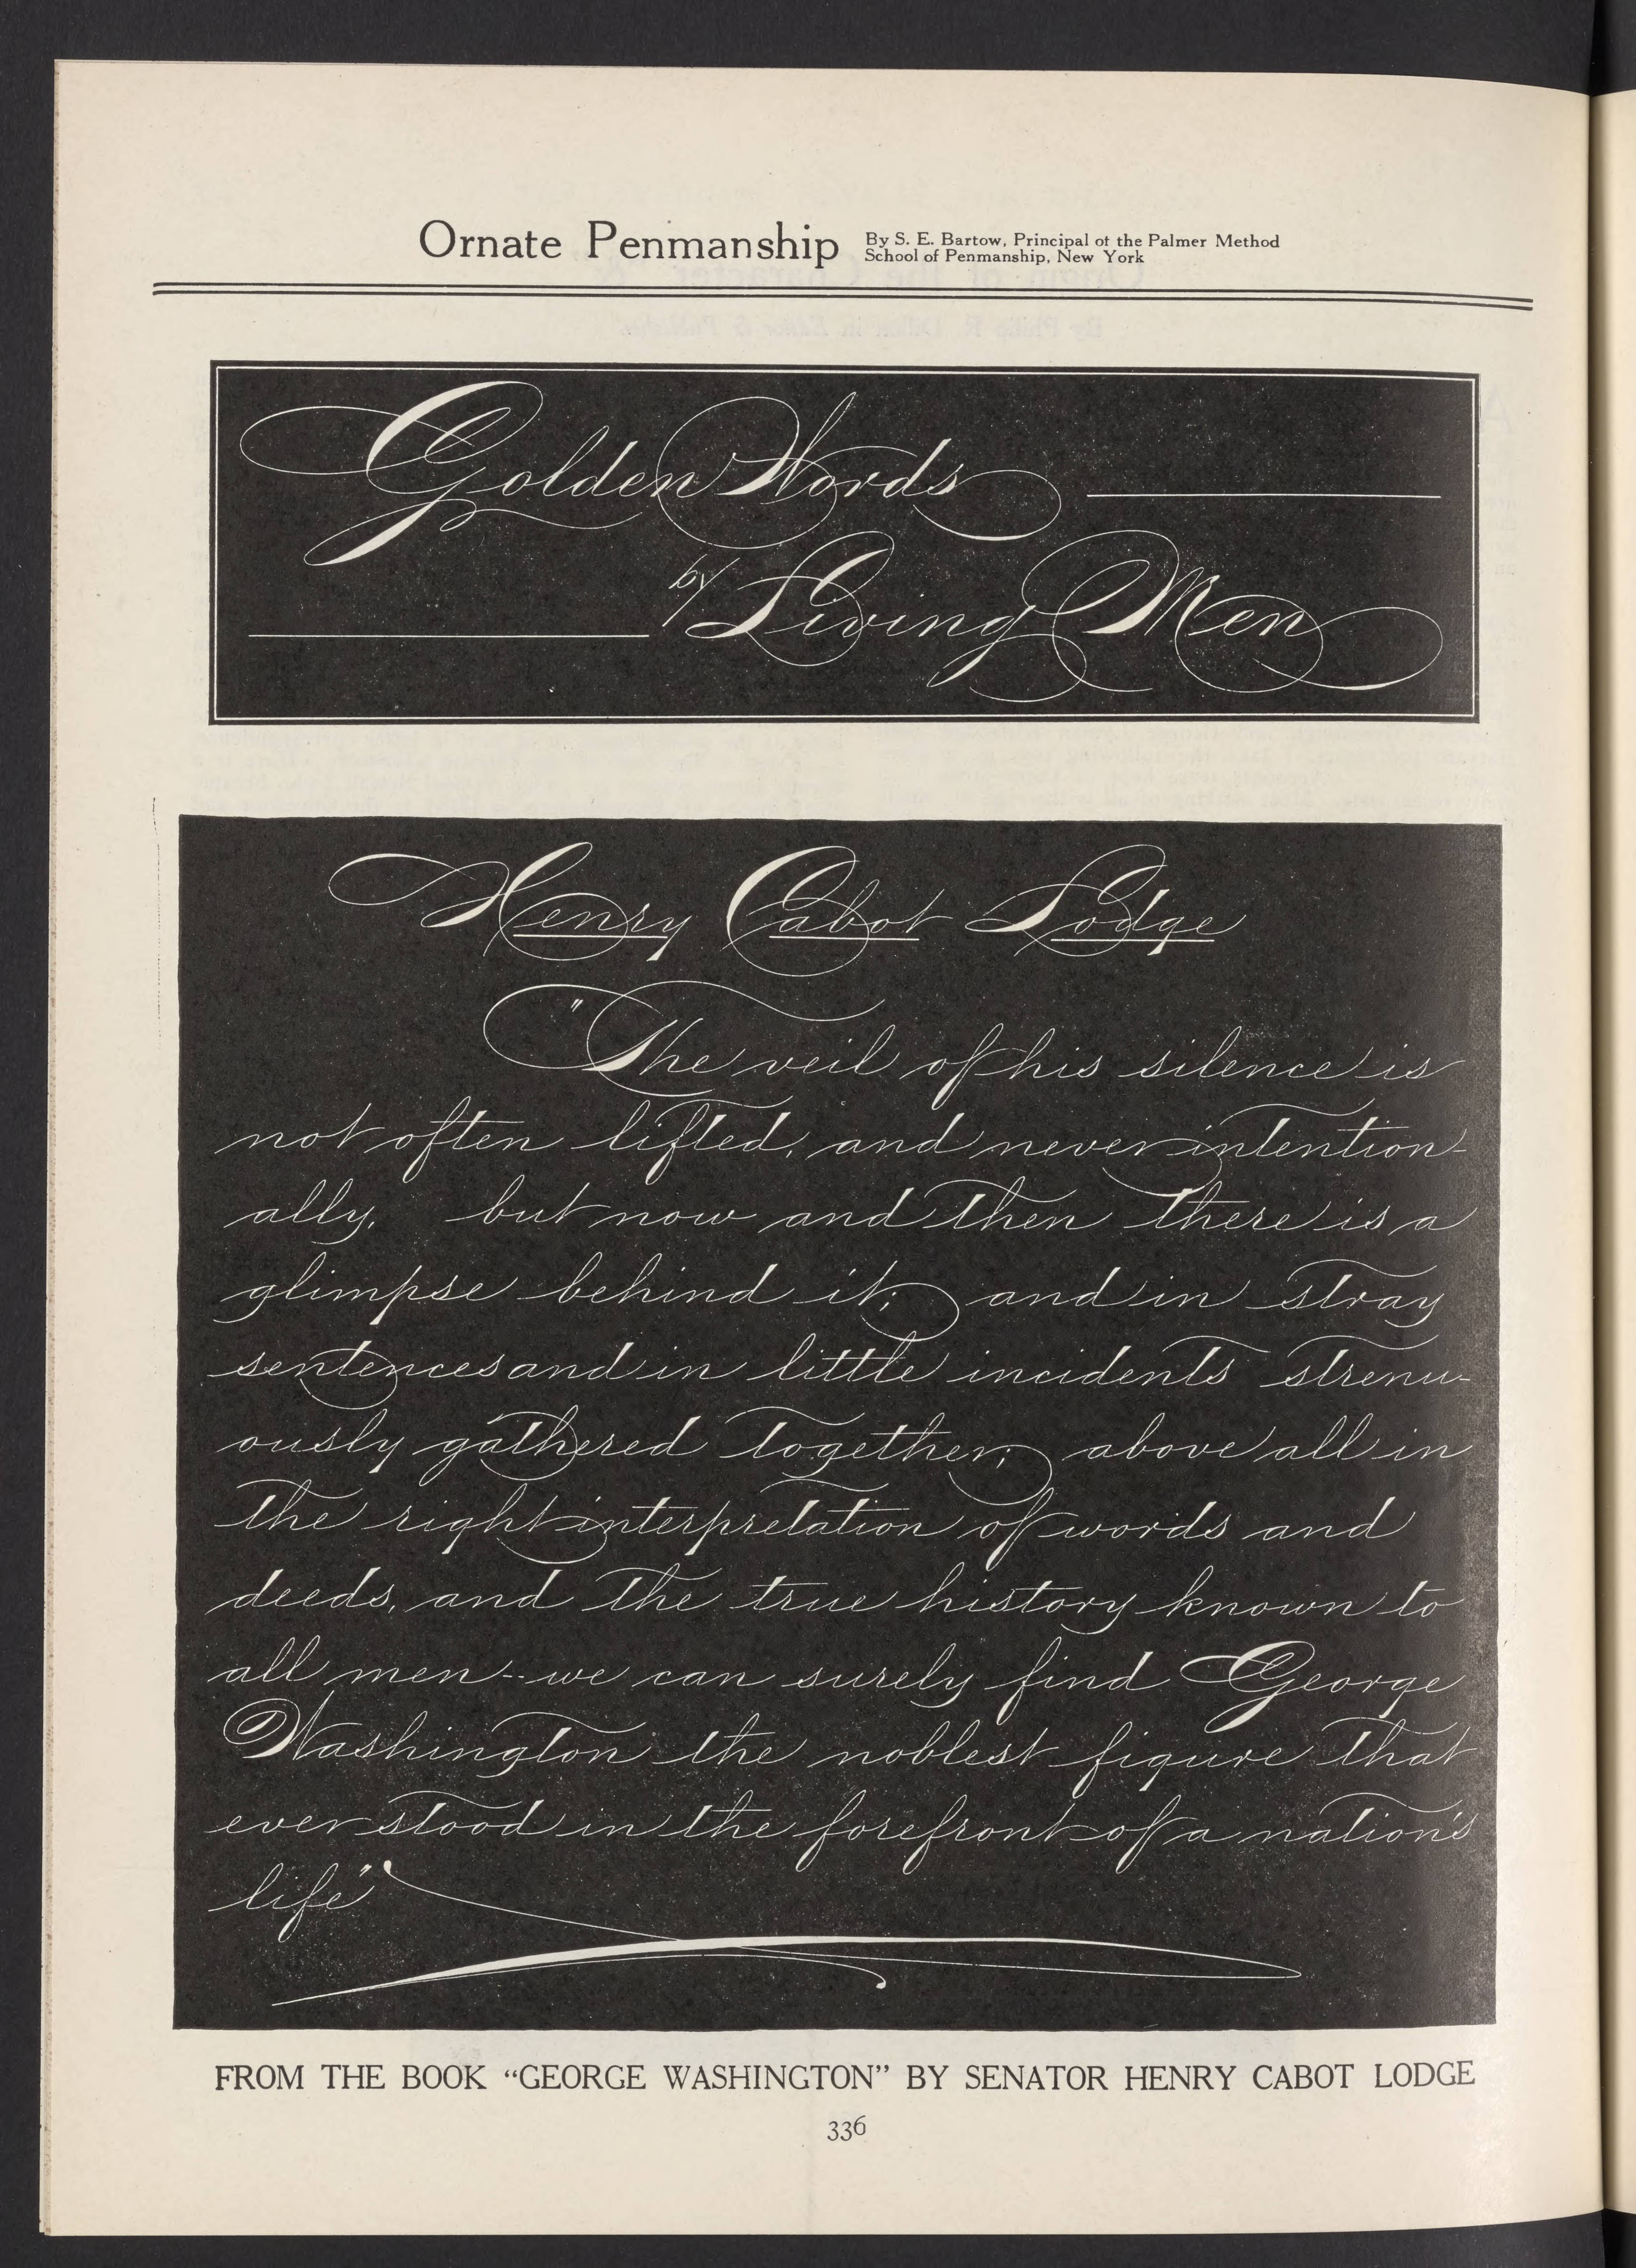 Ornate Penmanship
By S. E. Bartow, Principal of the Palmer Method
School of Penmanship, New York
Golden Words
by Living Men
Henry Cabot Lodge
"The veil of his silence is
not often lifted, and never intention-
ally, but now and then there is a
glimpse behind it; and in stray
sentences and in little incidents strenu-
ously gathered together; above all in
the right interpretation of words and
deeds, and the true history known to
all men--we can surely find George
Washington the noblest figure that
ever stood in the forefront of a nation's
life"
FROM THE BOOK "GEORGE WASHINGTON" BY SENATOR HENRY CABOT LODGE
336